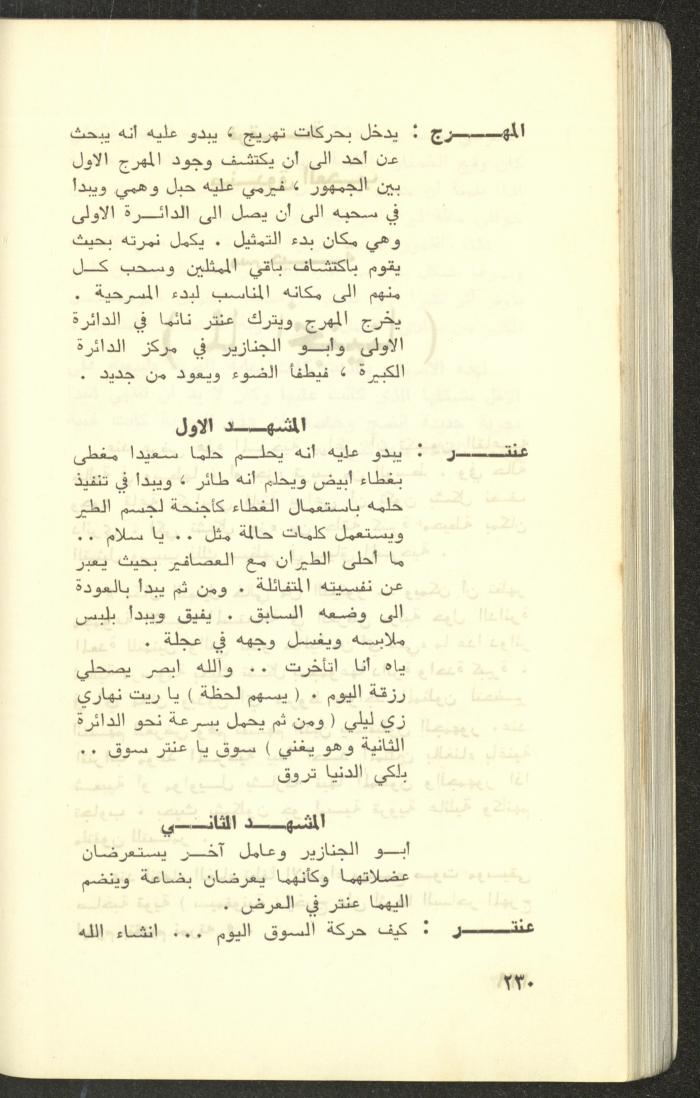 المهـــرج : يدخل بحركات تهريج ، يبدو عليه انه يبحث
عن احد الى ان يكتشف وجود المهرج الاول
بين الجمهور ، فيرمي عليه حبل وهمي ويبدأ
في سحبه الى ان يصل الى الدائـــرة الاولى
وهي مكان بدء التمثيل . يكمل نمرته بحيث
يقوم باكتشاف باقي الممثلين وسحب كـــل
منهم الى مكانه المناسب لبدء المسرحية .
يخرج المهرج ويترك عنتر نائما في الدائرة
الاولى وابــو الجنازير في مركز الدائرة
الكبيرة ، فيطفأ الضوء ويعود من جديد .
المشهـــد الاول
عنتـــــر : يبدو عليه انه يحلــم حلما سعيدا مغطى
بغطاء ابيض ويحلم انه طائر ، ويبدا في تنفيذ
حلمه باستعمال الغطاء كأجنحة لجسم الطير
ويستعمل كلمات حالمة مثل .. يا سلام ..
ما احلى الطيران مع العصافير بحيث يعبر
عن نفسيته المتفائلة . ومن ثم يبدأ بالعودة
الى وضعه السابق . يفيق ويبدأ بلبس
ملابسه ويغسل وجهه في عجلة .
ياه انا اتأخرت .. والله ابصر يصحلي
رزقة اليوم . ( يسهم لحظة ) يا ريت نهاري
زي ليلي ( ومن ثم يحمل بسرعة نحو الدائرة
الثانية وهو يغني ) سوق يا عنتر سوق ..
بلكي الدنيا تروق
المشهـــد الثانـــي
ابــو الجنازير وعامل آخــر يستعرضان
عضلاتهما وكأنهما يعرضان بضاعة وينضم
اليهما عنتر في العرض .
عنتـــــر : كيف حركة السوق اليوم ... انشاء الله
٢٣٠